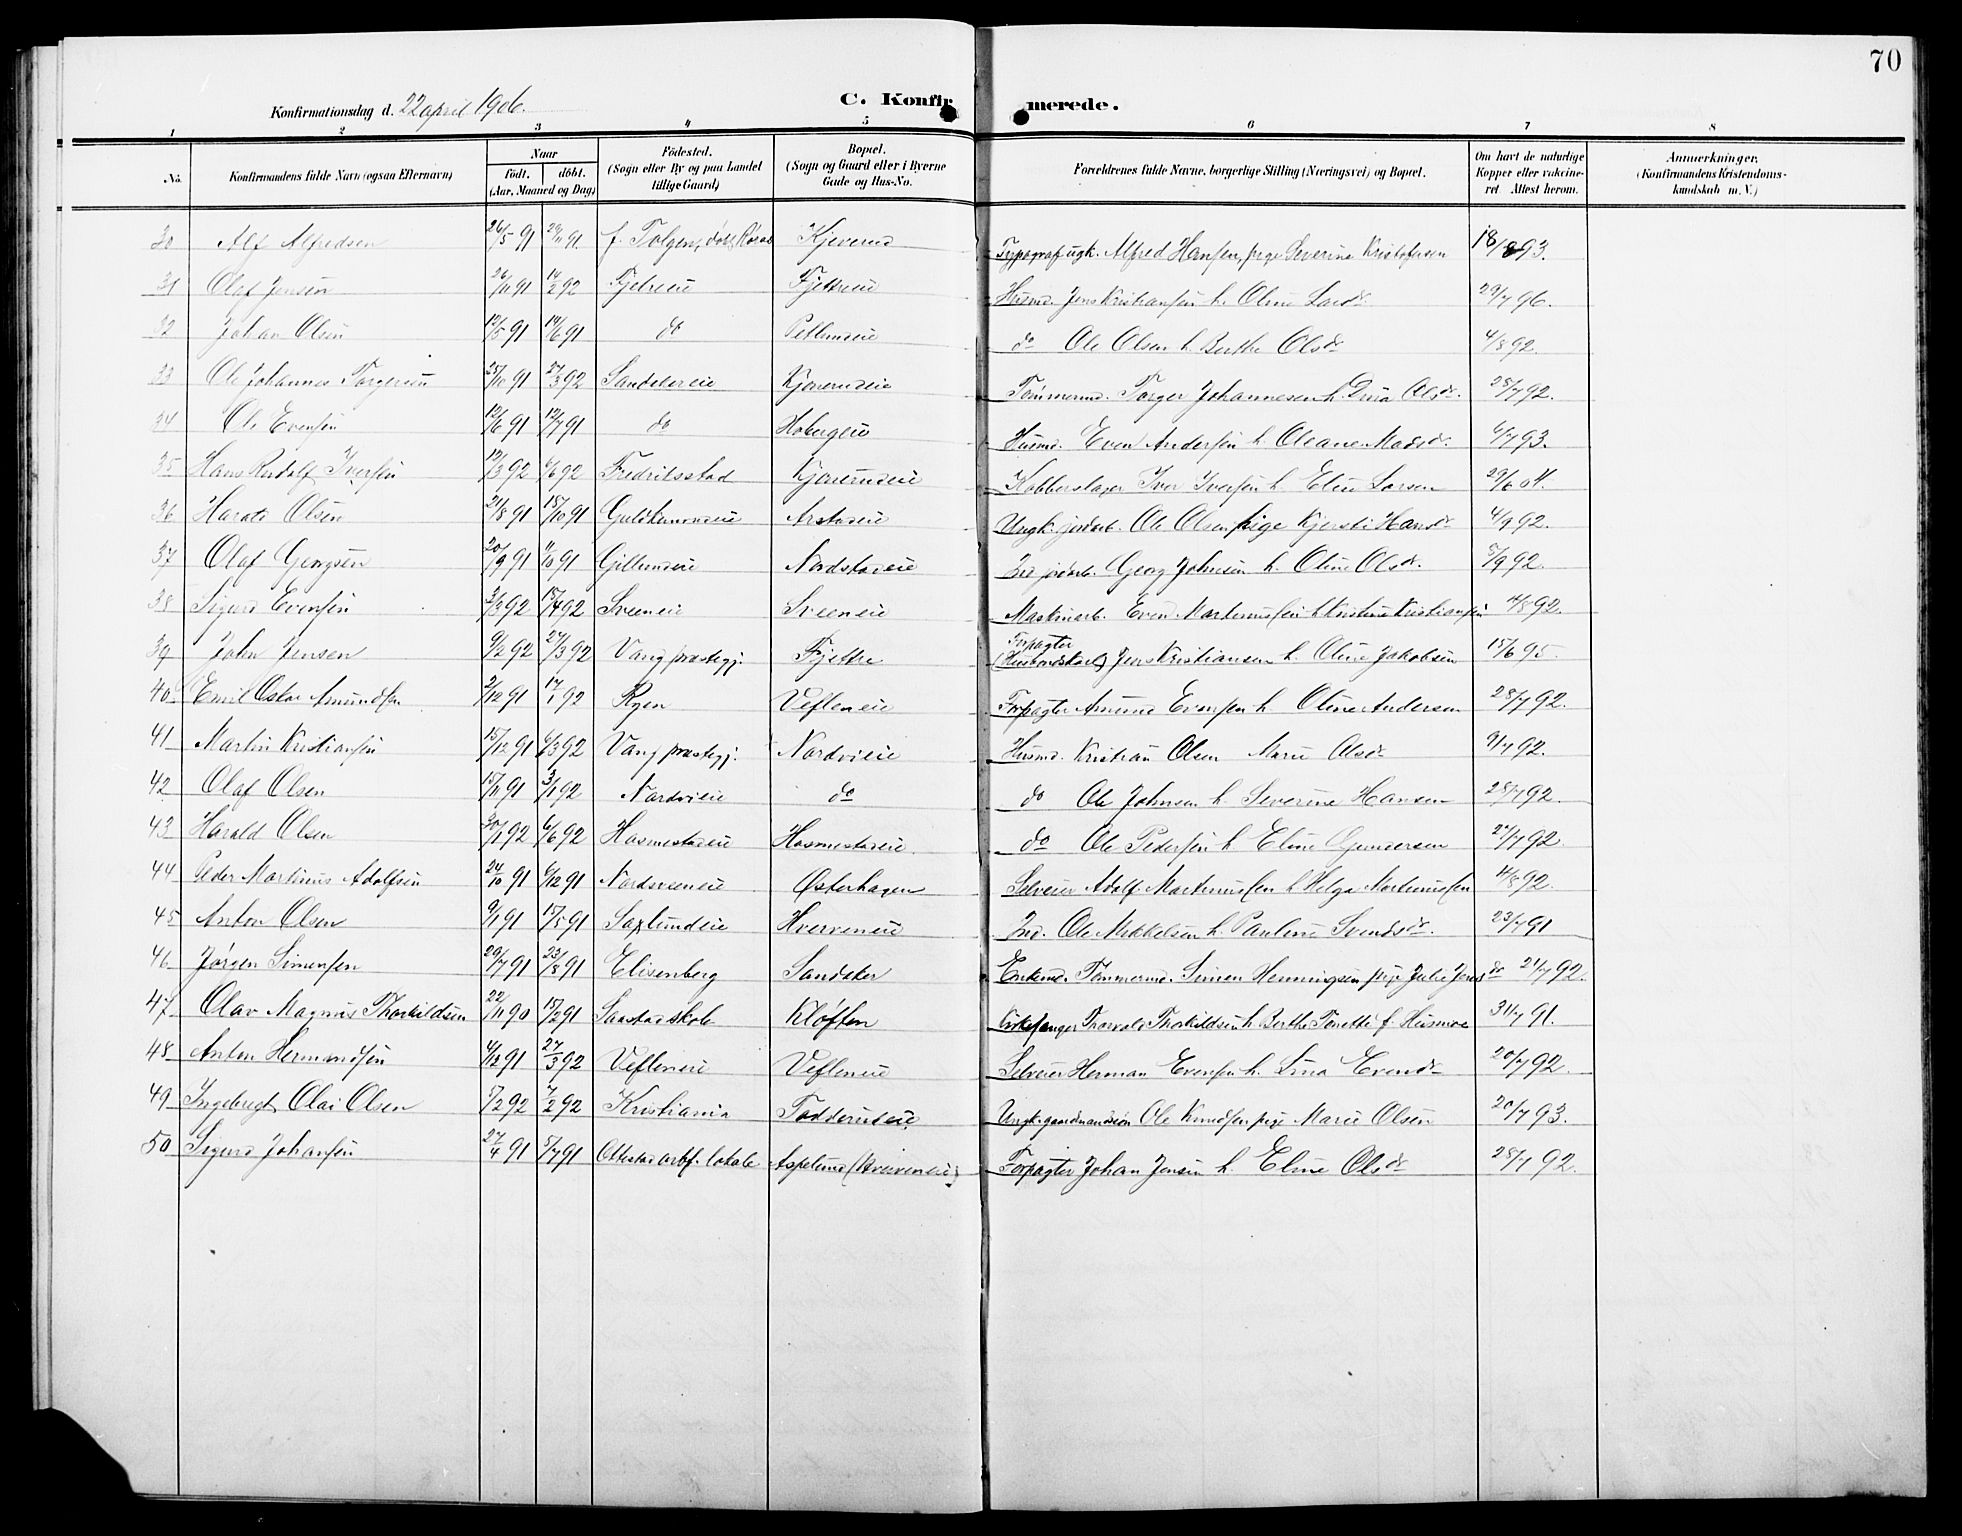 70
Konfirmationsdag d. 22 april 1906.
C. Konfirmerede.
1 2 3 4 5 6 7 8
No. Konfirmandens fulde Navn (ogsaa Efternavn) Naar födt. döbt. (Aar, Maaned og Dag) Födested. (Sogn eller By og paa Landet tillige Gaard) Bopæl. (Sogn og Gaard eller i Byerne Gade og Hus-No. Forældrenes fulde Navne, borgerlige Stilling (Næringsvei) og Bopæl. Om havt de naturlige Kopper eller vakcineret Attest herom. Anmerkninger. (Konfirmandens Kristendomskundskab m. V.)
30 Alf Alfredsen 26/5 91 29/11 91. f. Tolgen, døbt Røros Kjeverud Typograf ugk. Alfred Hansen, pige Severine Kristofersen 18/8 93.
31 Olaf Jensen 26/11 91 14/2 92 Fjetreeie Fjettreeie Husmd. Jens Kristiansen h. Oline Larsdr 29/7 96.
32 Johan Olsen 12/5 91 14/6 91 do Petlundeie do Ole Olsen h. Berthe Olsdr 4/8 92.
33 Ole Johannes Torgersen 25/10 91 27/3 92 Sandakereie Kjoverudeie Tømmermd. Torger Johannesen h. Dina Olsdr. 28/7 92.
34 Ole Evensen 12/6 91 12/7 91 do Hobergeie Husmd. Even Andersen h. Oleane Madsdr. 6/7 93.
35 Hans Rudolf Iversen 12/3 92 6/6 92 Fredriksstad Kjoverudeie Kobberslager Iver Iversen h. Eline Larsen 29/6 04.
36 Harald Olsen 21/8 91 18/10 91 Guldkerundeie Arstadeie Ungk. jordarb. Ole Olsen pige Kjersti Hansdr 4/9 92.
37 Olaf Georgsen 20/9 91 11/10 91 Gillundeie Nordstadeie Ind. jordarb. Georg Johnsen h. Oline Olsdr. 5/9 92.
38 Sigurd Evensen 3/3 92 17/4 92 Sveeneie Sveeneie Maskinarb. Even Martinussen h. Kristine Kristiansen 11/8 92.
39 John Jensen 9/2 92 27/3 92 Vang prestegj. Fjettre Forpagter (Husbondskarl) Jens Kristiansen h. Oline Jakobsen 15/6 95.
40 Emil Oskar Amundsen 2/12 91 17/1 92 Ryen Vefleneie Forpagter Amund Evensen h. Oline Andersen 28/7 92.
41 Martin Kristiansen 15/12 91 6/3 92 Vang prestegj. Nordvieie Husmd. Kristian Olsen Marie Olsdr 9/7 92.
42 Olaf Olsen 15/11 91 3/1 92 Nordvieie do do Ole Johnsen h. Severine Hansen 28/7 92.
43 Harald Olsen 30/1 92 6/6 92 Hasmestadeie Hosmestadeie. do Ole Pedersen h. Eline Gundersen 27/7 92.
44 Peder Martinus Adolfsen 24/10 91 6/12 91 Nordsveeneie Østerhagen Selveier Adolf Martinussen h. Helga Martinussen 11/8 92.
45 Anton Olsen 9/1 91 17/5 91 Saxlundeie Hverveneie Ind. Ole Mikkelsen h. Pauline Svendsdr. 23/7 91
46 Jørgen Simensen 29/7 91 23/8 91 Elisenberg Sandaker Enkemd. Tømmermd. Simen Henningsen pige Julie Jensdr 21/7 92.
47 Olav Magnus Thorkildsen 22/11 90 15/2 91 Saastad skole Kløften Kirkesanger Thorvald Thorkildsen h. Berthe Tonette f. Husmoe 31/7 91.
48 Anton Hermandsen 4/12 91 27/3 92 Vefleneie Vefleneie Selveier Herman Evensen h. Lina Evensdr 20/7 92.
49 Ingebregt Olai Olsen 5/2 92 7/2 92 Kristiania Todderudeie Ungk. gaardmandssøn Ole Knudsen pige Marie Olsen 20/7 93.
50 Sigurd Johansen 27/4 91 5/7 91 Ottestad arbf. lokale Aspelund (Hverveneie) Forpagter Johan Jensen h. Eline Olsdr 28/7 92.